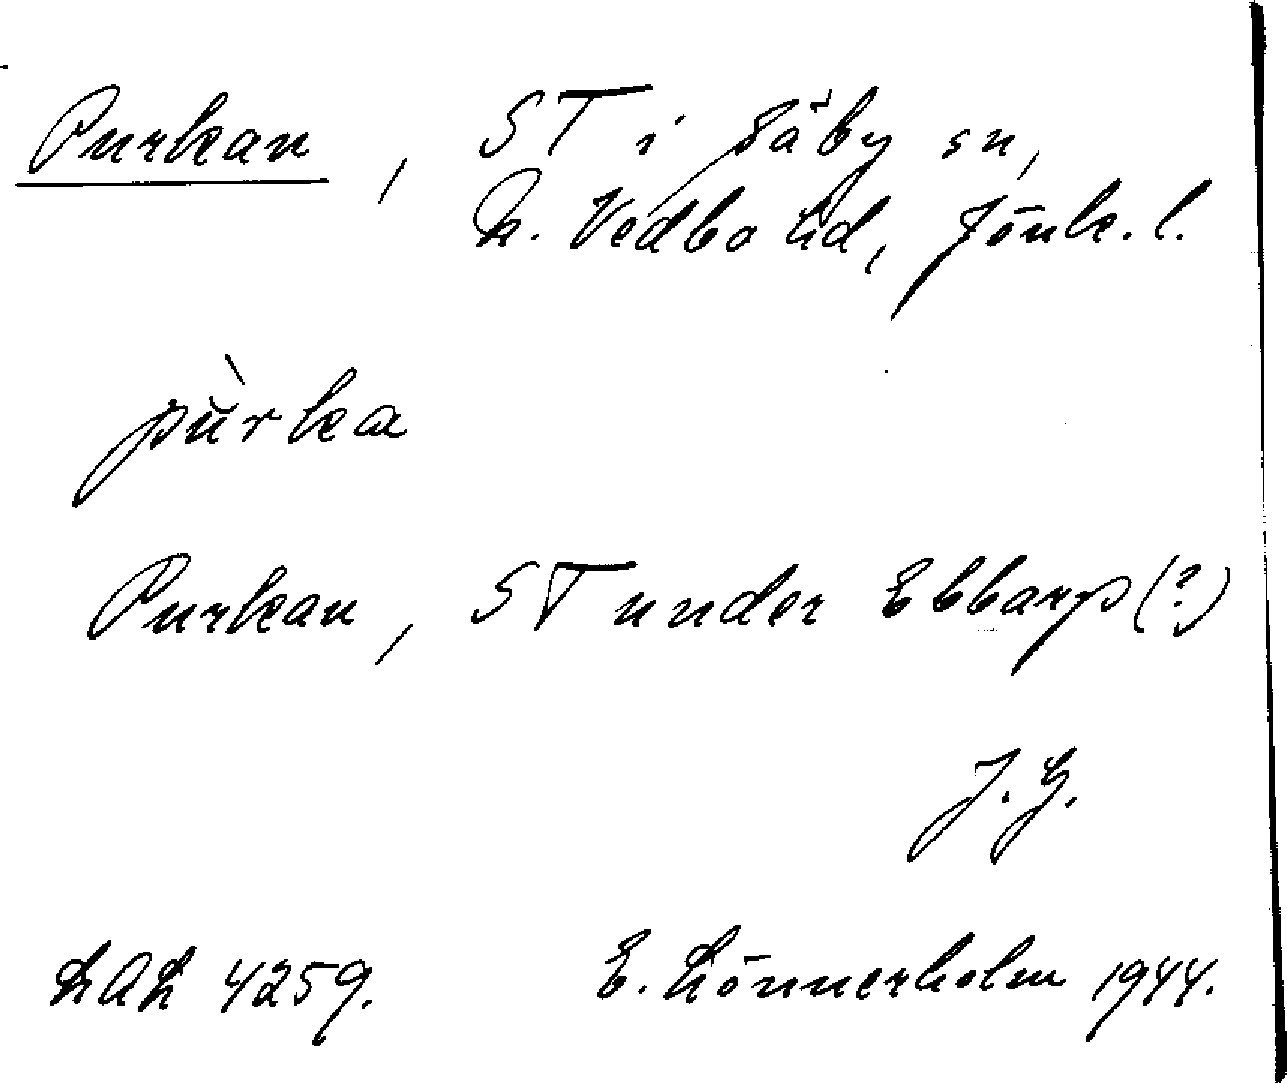 Purkan, ST i Säby sn,
N. Vedbo hd, Jönk. l.
pùrka
Purkan, ST under Ebbarp(?)
J. G.
LAL 4259. E. Lönnerholm 1944.